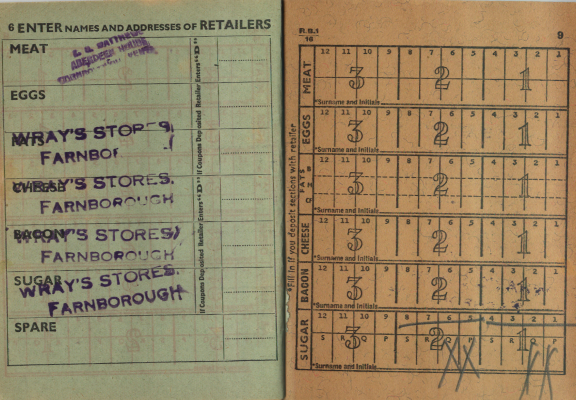 6 ENTER NAMES AND ADDRESSES OF RETAILERS
MEAT
ABERDEEN HOUSE
EGGS
FATS
WRAY'S STORES
FARNBOR
CHEESE
WRAY'S STORES.
FARNBOROUGH
BACON
WRAY'S STORES
FARNBOROUGH
SUGAR
WRAY'S STORES.
FARNBOROUGH
SPARE
If Coupons Deposited Retailer Enters "D"
If Coupons Deposited Retailer Enters "D"
R.B.1
16
9
*Fill in if you deposit sections with retailer
MEAT
12 11 10 9 8 7 6 5 4 3 2 1
3 2 1
*Surname and Initials
EGGS
12 11 10 9 8 7 6 5 4 3 2 1
3 2 1
*Surname and Initials
FATS
12 11 10 9 8 7 6 5 4 3 2 1
3 2 1
*Surname and Initials
CHEESE
12 11 10 9 8 7 6 5 4 3 2 1
3 2 1
*Surname and Initials
BACON
12 11 10 9 8 7 6 5 4 3 2 1
3 2 1
*Surname and Initials
SUGAR
12 11 10 9 8 7 6 5 4 3 2 1
S R Q P S R Q P S R Q P
3 2 1
*Surname and Initials